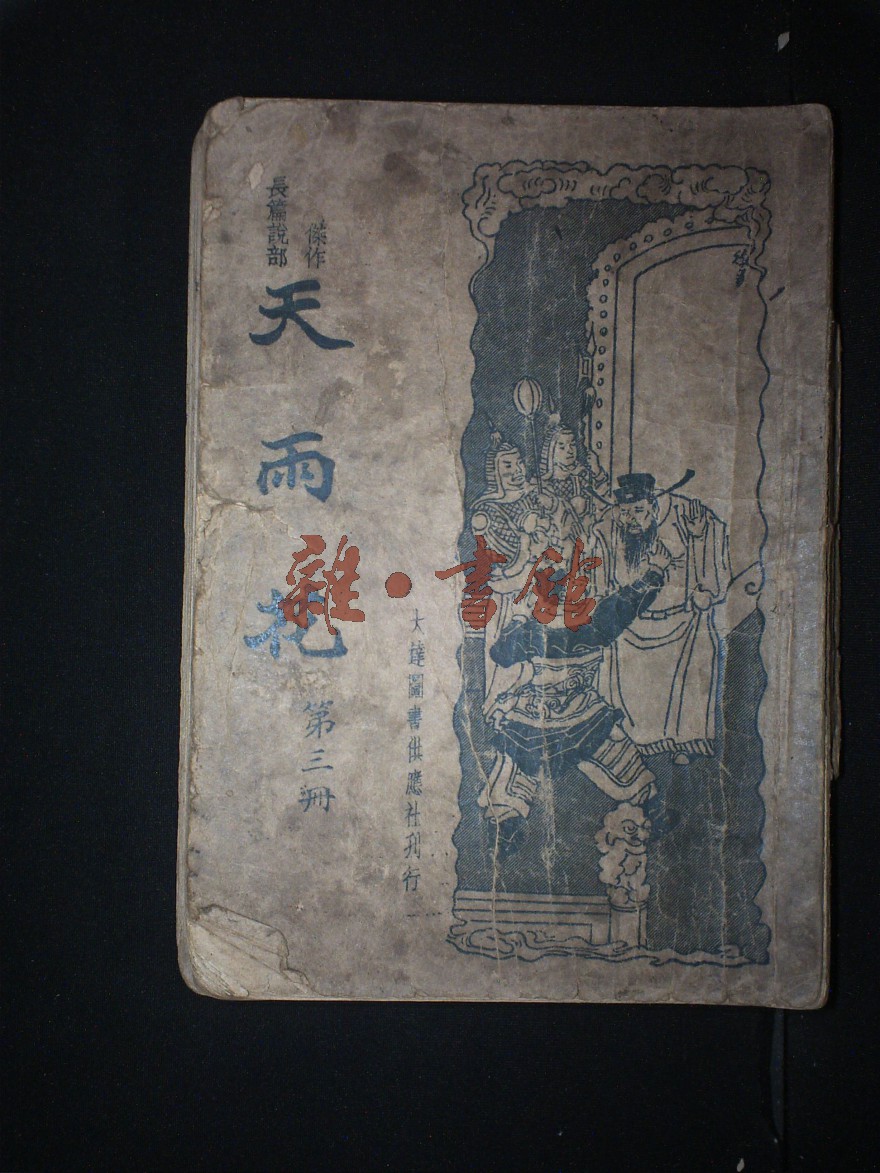 傑作
長篇說部
天雨花
第三册
大達圖書供應社刊行
雜·書館